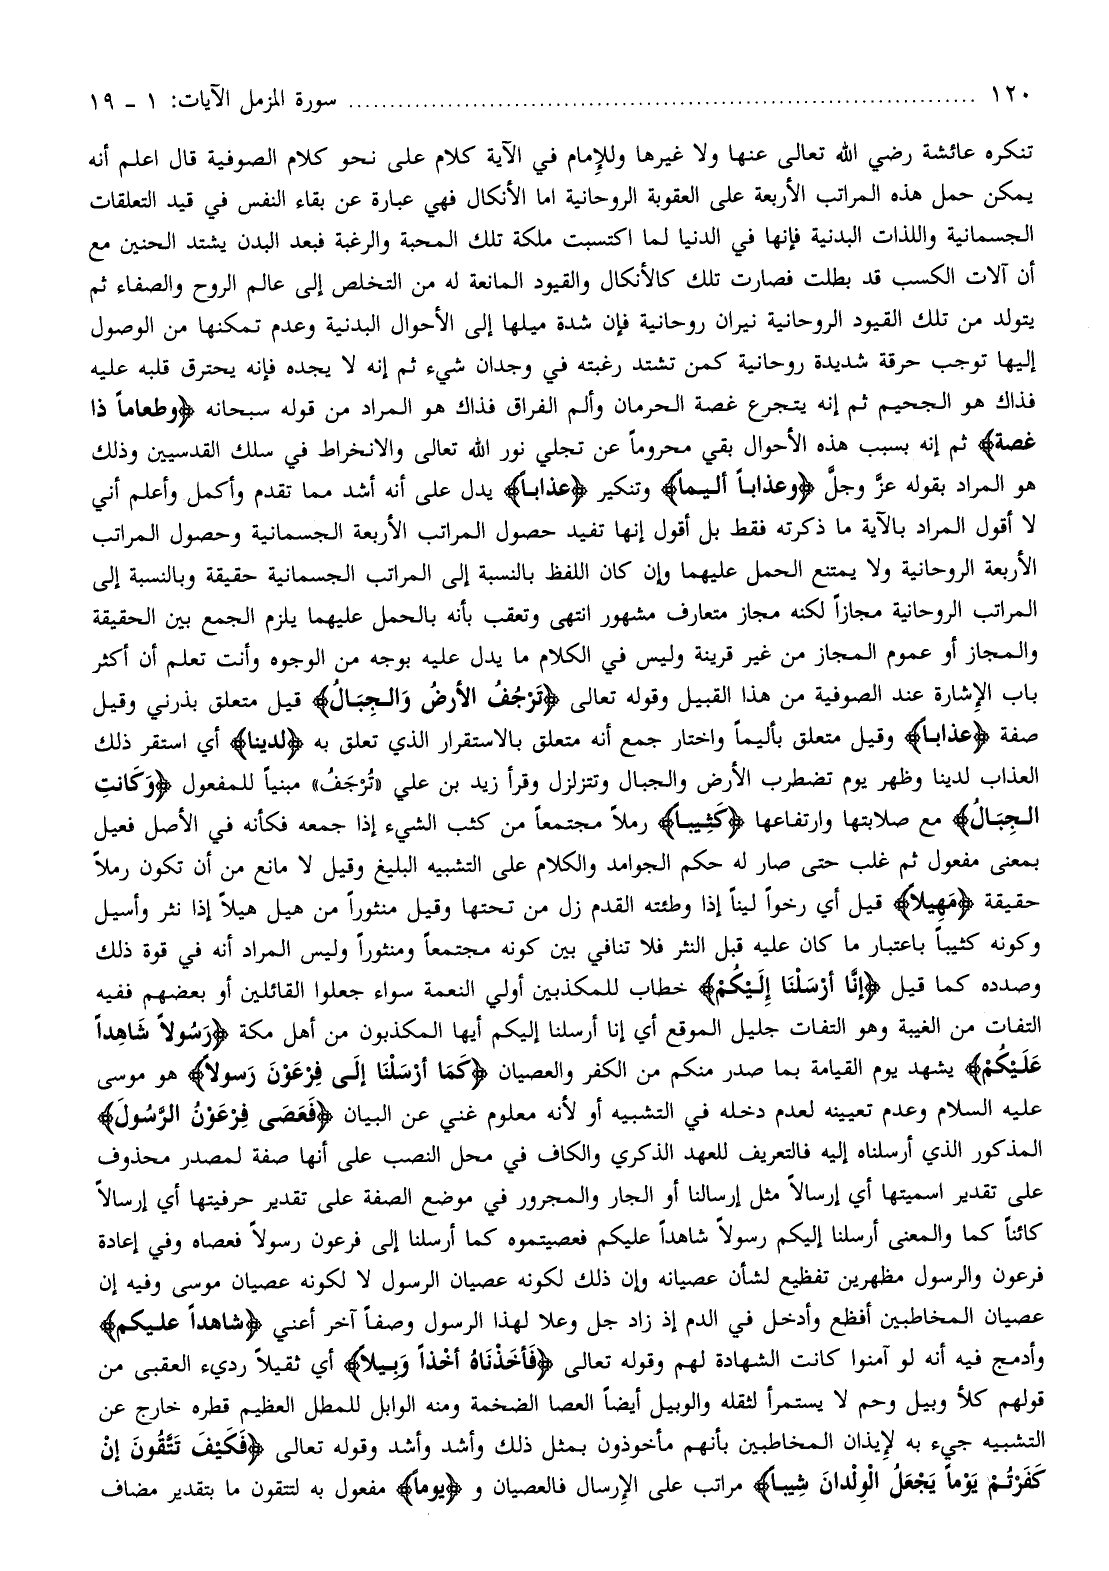 ١٢٠ ........................................................................ سورة المزمل الآيات: ١ ـ ١٩
تنكره عائشة رضي الله تعالى عنها ولا غيرها وللإمام في الآية كلام على نحو كلام الصوفية قال اعلم أنه
يمكن حمل هذه المراتب الأربعة على العقوبة الروحانية اما الأنكال فهي عبارة عن بقاء النفس في قيد التعلقات
الجسمانية واللذات البدنية فإنها في الدنيا لما اكتسبت ملكة تلك المحبة والرغبة فبعد البدن يشتد الحنين مع
أن آلات الكسب قد بطلت فصارت تلك كالأنكال والقيود المانعة له من التخلص إلى عالم الروح والصفاء ثم
يتولد من تلك القيود الروحانية نيران روحانية فإن شدة ميلها إلى الأحوال البدنية وعدم تمكنها من الوصول
إليها توجب حرقة شديدة روحانية كمن تشتد رغبته في وجدان شيء ثم إنه لا يجده فإنه يحترق قلبه عليه
فذاك هو الجحيم ثم إنه يتجرع غصة الحرمان وألم الفراق فذاك هو المراد من قوله سبحانه ﴿وطعاماً ذا
غصة﴾ ثم إنه بسبب هذه الأحوال بقي محروماً عن تجلي نور الله تعالى والانخراط في سلك القدسيين وذلك
هو المراد بقوله عزَّ وجلَّ ﴿وعذاباً أليماً﴾ وتنكير ﴿عذاباً﴾ يدل على أنه أشد مما تقدم وأكمل وأعلم أني
لا أقول المراد بالآية ما ذكرته فقط بل أقول إنها تفيد حصول المراتب الأربعة الجسمانية وحصول المراتب
الأربعة الروحانية ولا يمتنع الحمل عليهما وإن كان اللفظ بالنسبة إلى المراتب الجسمانية حقيقة وبالنسبة إلى
المراتب الروحانية مجازاً لكنه مجاز متعارف مشهور انتهى وتعقب بأنه بالحمل عليهما يلزم الجمع بين الحقيقة
والمجاز أو عموم المجاز من غير قرينة وليس في الكلام ما يدل عليه بوجه من الوجوه وأنت تعلم أن أكثر
باب الإشارة عند الصوفية من هذا القبيل وقوله تعالى ﴿تَرْجُفُ الأرضُ وَالجِبَالُ﴾ قيل متعلق بذرني وقيل
صفة ﴿عذاباً﴾ وقيل متعلق بأليماً واختار جمع أنه متعلق بالاستقرار الذي تعلق به ﴿لدينا﴾ أي استقر ذلك
العذاب لدينا وظهر يوم تضطرب الأرض والجبال وتتزلزل وقرأ زيد بن علي «تُرْجَفُ» مبنياً للمفعول ﴿وَكَانتِ
الجِبَالُ﴾ مع صلابتها وارتفاعها ﴿كَثِيباً﴾ رملاً مجتمعاً من كثب الشيء إذا جمعه فكأنه في الأصل فعيل
بمعنى مفعول ثم غلب حتى صار له حكم الجوامد والكلام على التشبيه البليغ وقيل لا مانع من أن تكون رملاً
حقيقة ﴿مَهِيلاً﴾ قيل أي رخواً ليناً إذا وطئته القدم زل من تحتها وقيل منثوراً من هيل هيلاً إذا نثر وأسيل
وكونه كثيباً باعتبار ما كان عليه قبل النثر فلا تنافي بين كونه مجتمعاً ومنثوراً وليس المراد أنه في قوة ذلك
وصدده كما قيل ﴿إنَّا أرْسَلْنَا إِلَيكُمْ﴾ خطاب للمكذبين أولي النعمة سواء جعلوا القائلين أو بعضهم ففيه
التفات من الغيبة وهو التفات جليل الموقع أي إنا أرسلنا إليكم أيها المكذبون من أهل مكة ﴿رَسُولاً شَاهِداً
عَلَيْكُمْ﴾ يشهد يوم القيامة بما صدر منكم من الكفر والعصيان ﴿كَمَا أرْسَلْنَا إلَى فِرْعَوْنَ رَسولاً﴾ هو موسى
عليه السلام وعدم تعيينه لعدم دخله في التشبيه أو لأنه معلوم غني عن البيان ﴿فَعَصَى فِرْعَوْنُ الرَّسُولَ﴾
المذكور الذي أرسلناه إليه فالتعريف للعهد الذكري والكاف في محل النصب على أنها صفة لمصدر محذوف
على تقدير اسميتها أي إرسالاً مثل إرسالنا أو الجار والمجرور في موضع الصفة على تقدير حرفيتها أي إرسالاً
كائناً كما والمعنى أرسلنا إليكم رسولاً شاهداً عليكم فعصيتموه كما أرسلنا إلى فرعون رسولاً فعصاه وفي إعادة
فرعون والرسول مظهرين تفظيع لشأن عصيانه وإن ذلك لكونه عصيان الرسول لا لكونه عصيان موسى وفيه إن
عصيان المخاطبين أفظع وأدخل في الدم إذ زاد جل وعلا لهذا الرسول وصفاً آخر أعني ﴿شاهداً عليكم﴾
وأدمج فيه أنه لو آمنوا كانت الشهادة لهم وقوله تعالى ﴿فَأخَذْنَاهُ أخْذاً وَبِيلاً﴾ أي ثقيلاً رديء العقبى من
قولهم كلأ وبيل وحم لا يستمرأ لثقله والوبيل أيضاً العصا الضخمة ومنه الوابل للمطل العظيم قطره خارج عن
التشبيه جيء به لإيذان المخاطبين بأنهم مأخوذون بمثل ذلك وأشد وأشد وقوله تعالى ﴿فَكَيْفَ تَتَّقُونَ إنْ
كَفَرْتُمْ يَوْماً يَجْعَلُ الْوِلْدانَ شِيباً﴾ مراتب على الإرسال فالعصيان و ﴿يوماً﴾ مفعول به لتتقون ما بتقدير مضاف